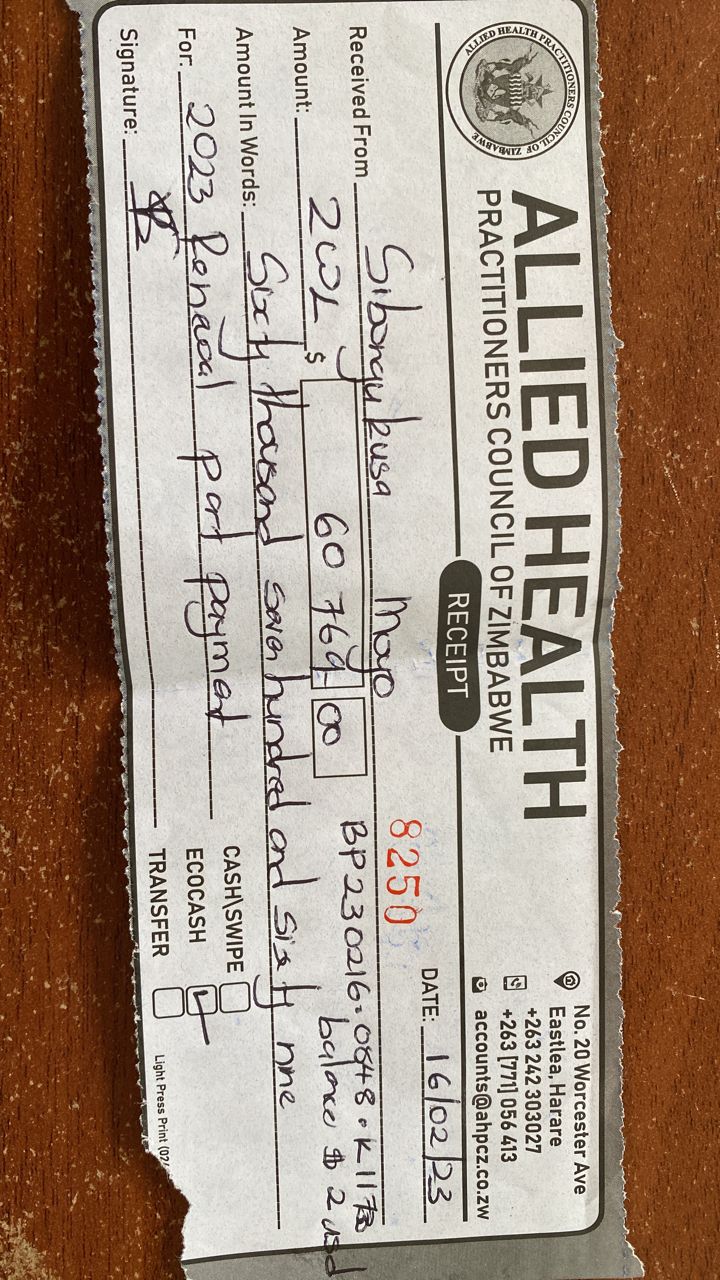 ALLIED HEALTH PRACTITIONERS COUNCIL OF ZIMBABWE
ALLIED HEALTH
PRACTITIONERS COUNCIL OF ZIMBABWE
No. 20 Worcester Ave
Eastlea, Harare
+263 242 303027
+263 [771] 056 413
accounts@ahpcz.co.zw
RECEIPT
8250
DATE: 16/02/23
Received From Sibongukusa Moyo
BP230216.0848.K117
Amount: ZWL $ 60 769 00
balance $ 2 usd
Amount In Words: Sixty thousand seven hundred and Sixty nine
For: 2023 Renewal part payment
Signature:
CASH\SWIPE
ECOCASH
TRANSFER
Light Press Print (02